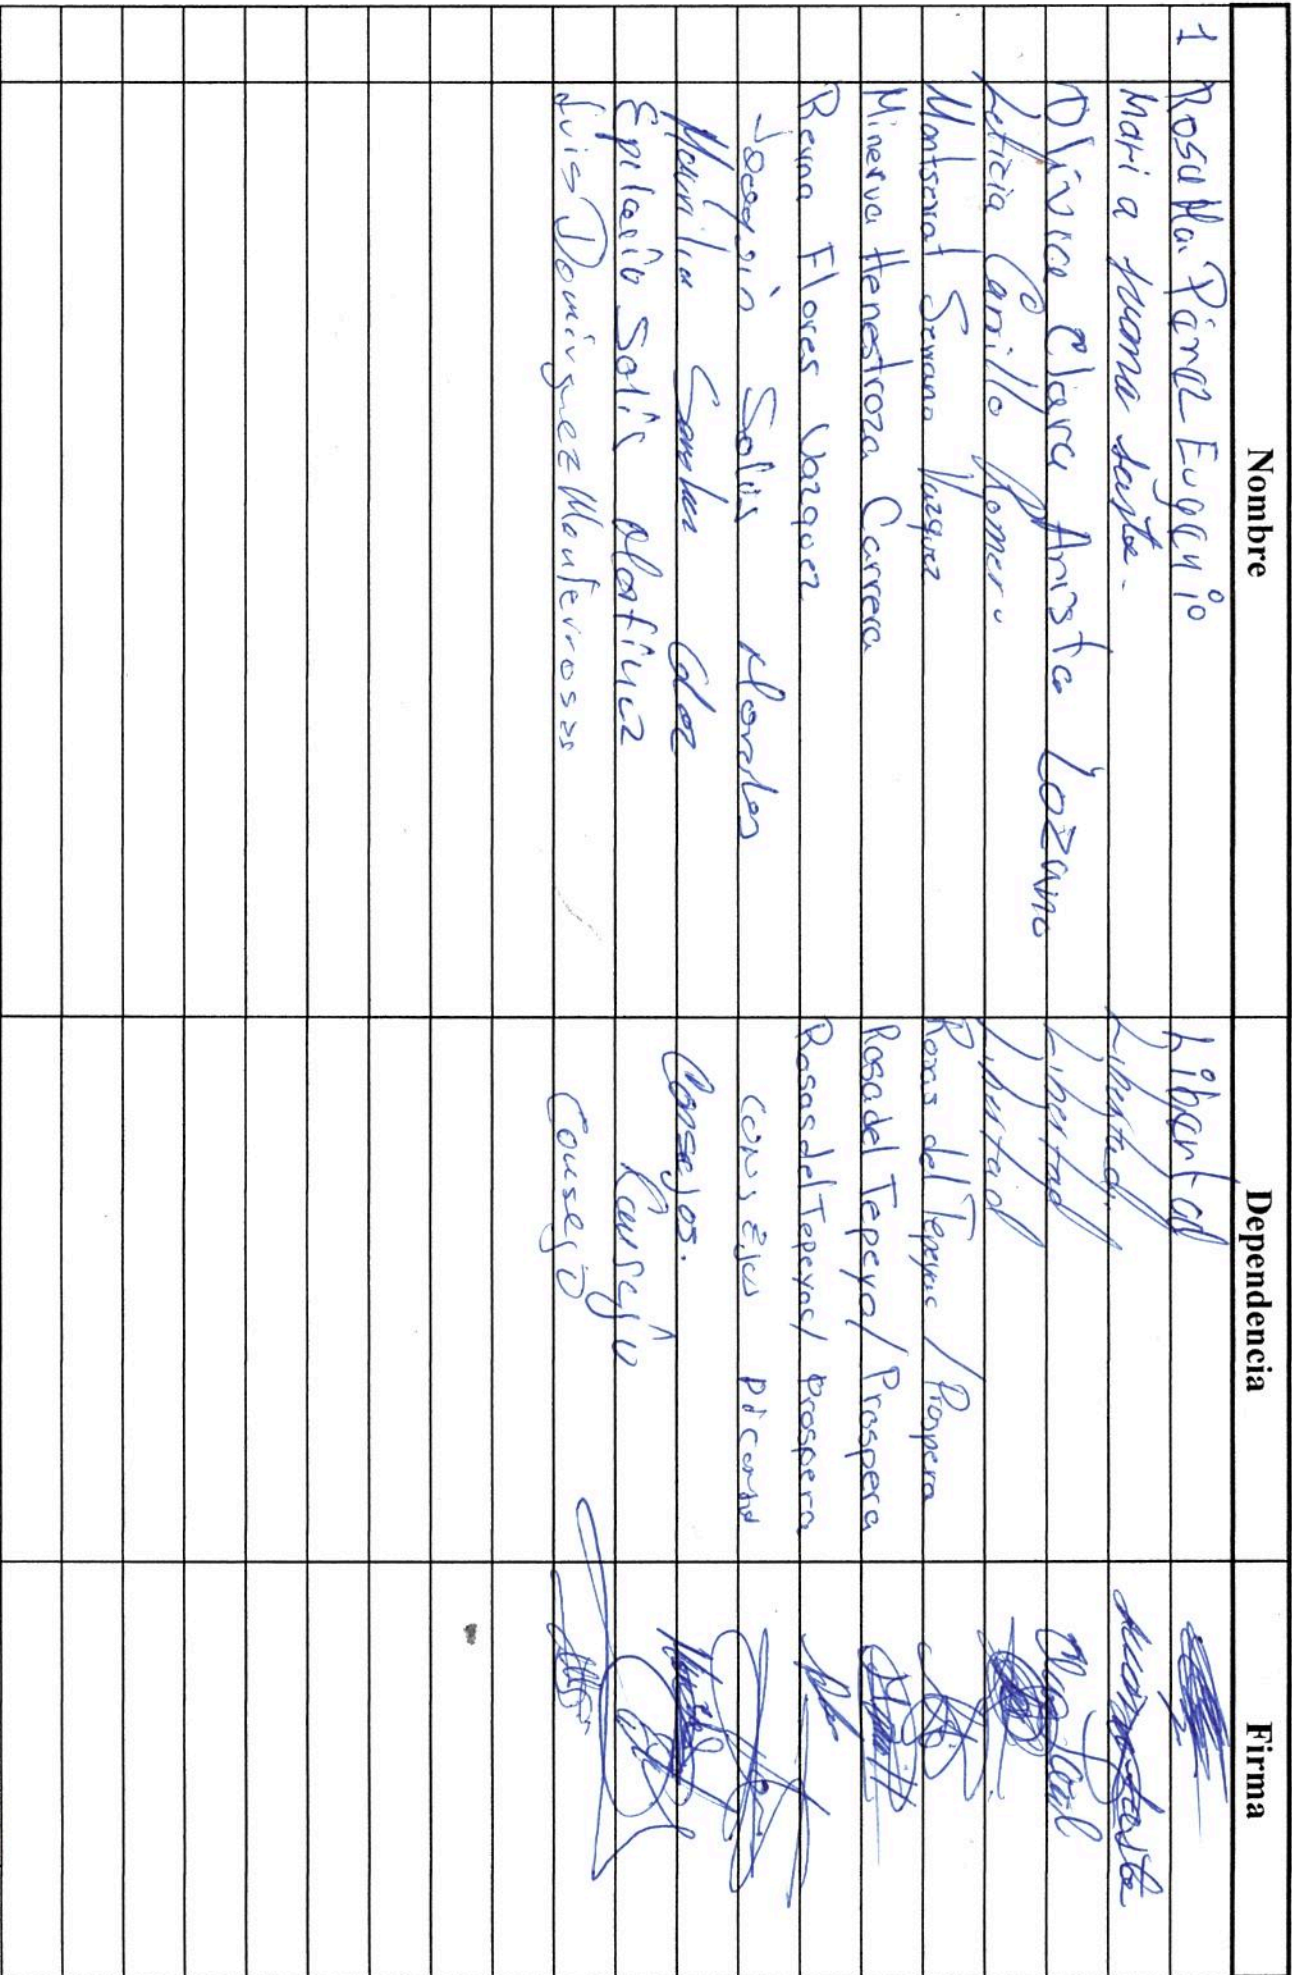 Nombre Dependencia Firma
1 Rosa Ma. Pérez Eugenio Libertad
Maria juana santa. Libertad.
Olivia Clara Arista Lozano Libertad
Leticia Carrillo Romero Libertad
Montserrat Serrano Vazquez Rosas del Tepeyac / Prospera
Minerva Henestroza Carrera Rosa del Tepeya / Prospera
Reyna Flores Vazquez Rosas del Tepeyac / Prospera
Solis Morales consejo
Consejos.
Epitacio Solis Martinez Consejo
Luis Dominguez Monterrosas Consejo